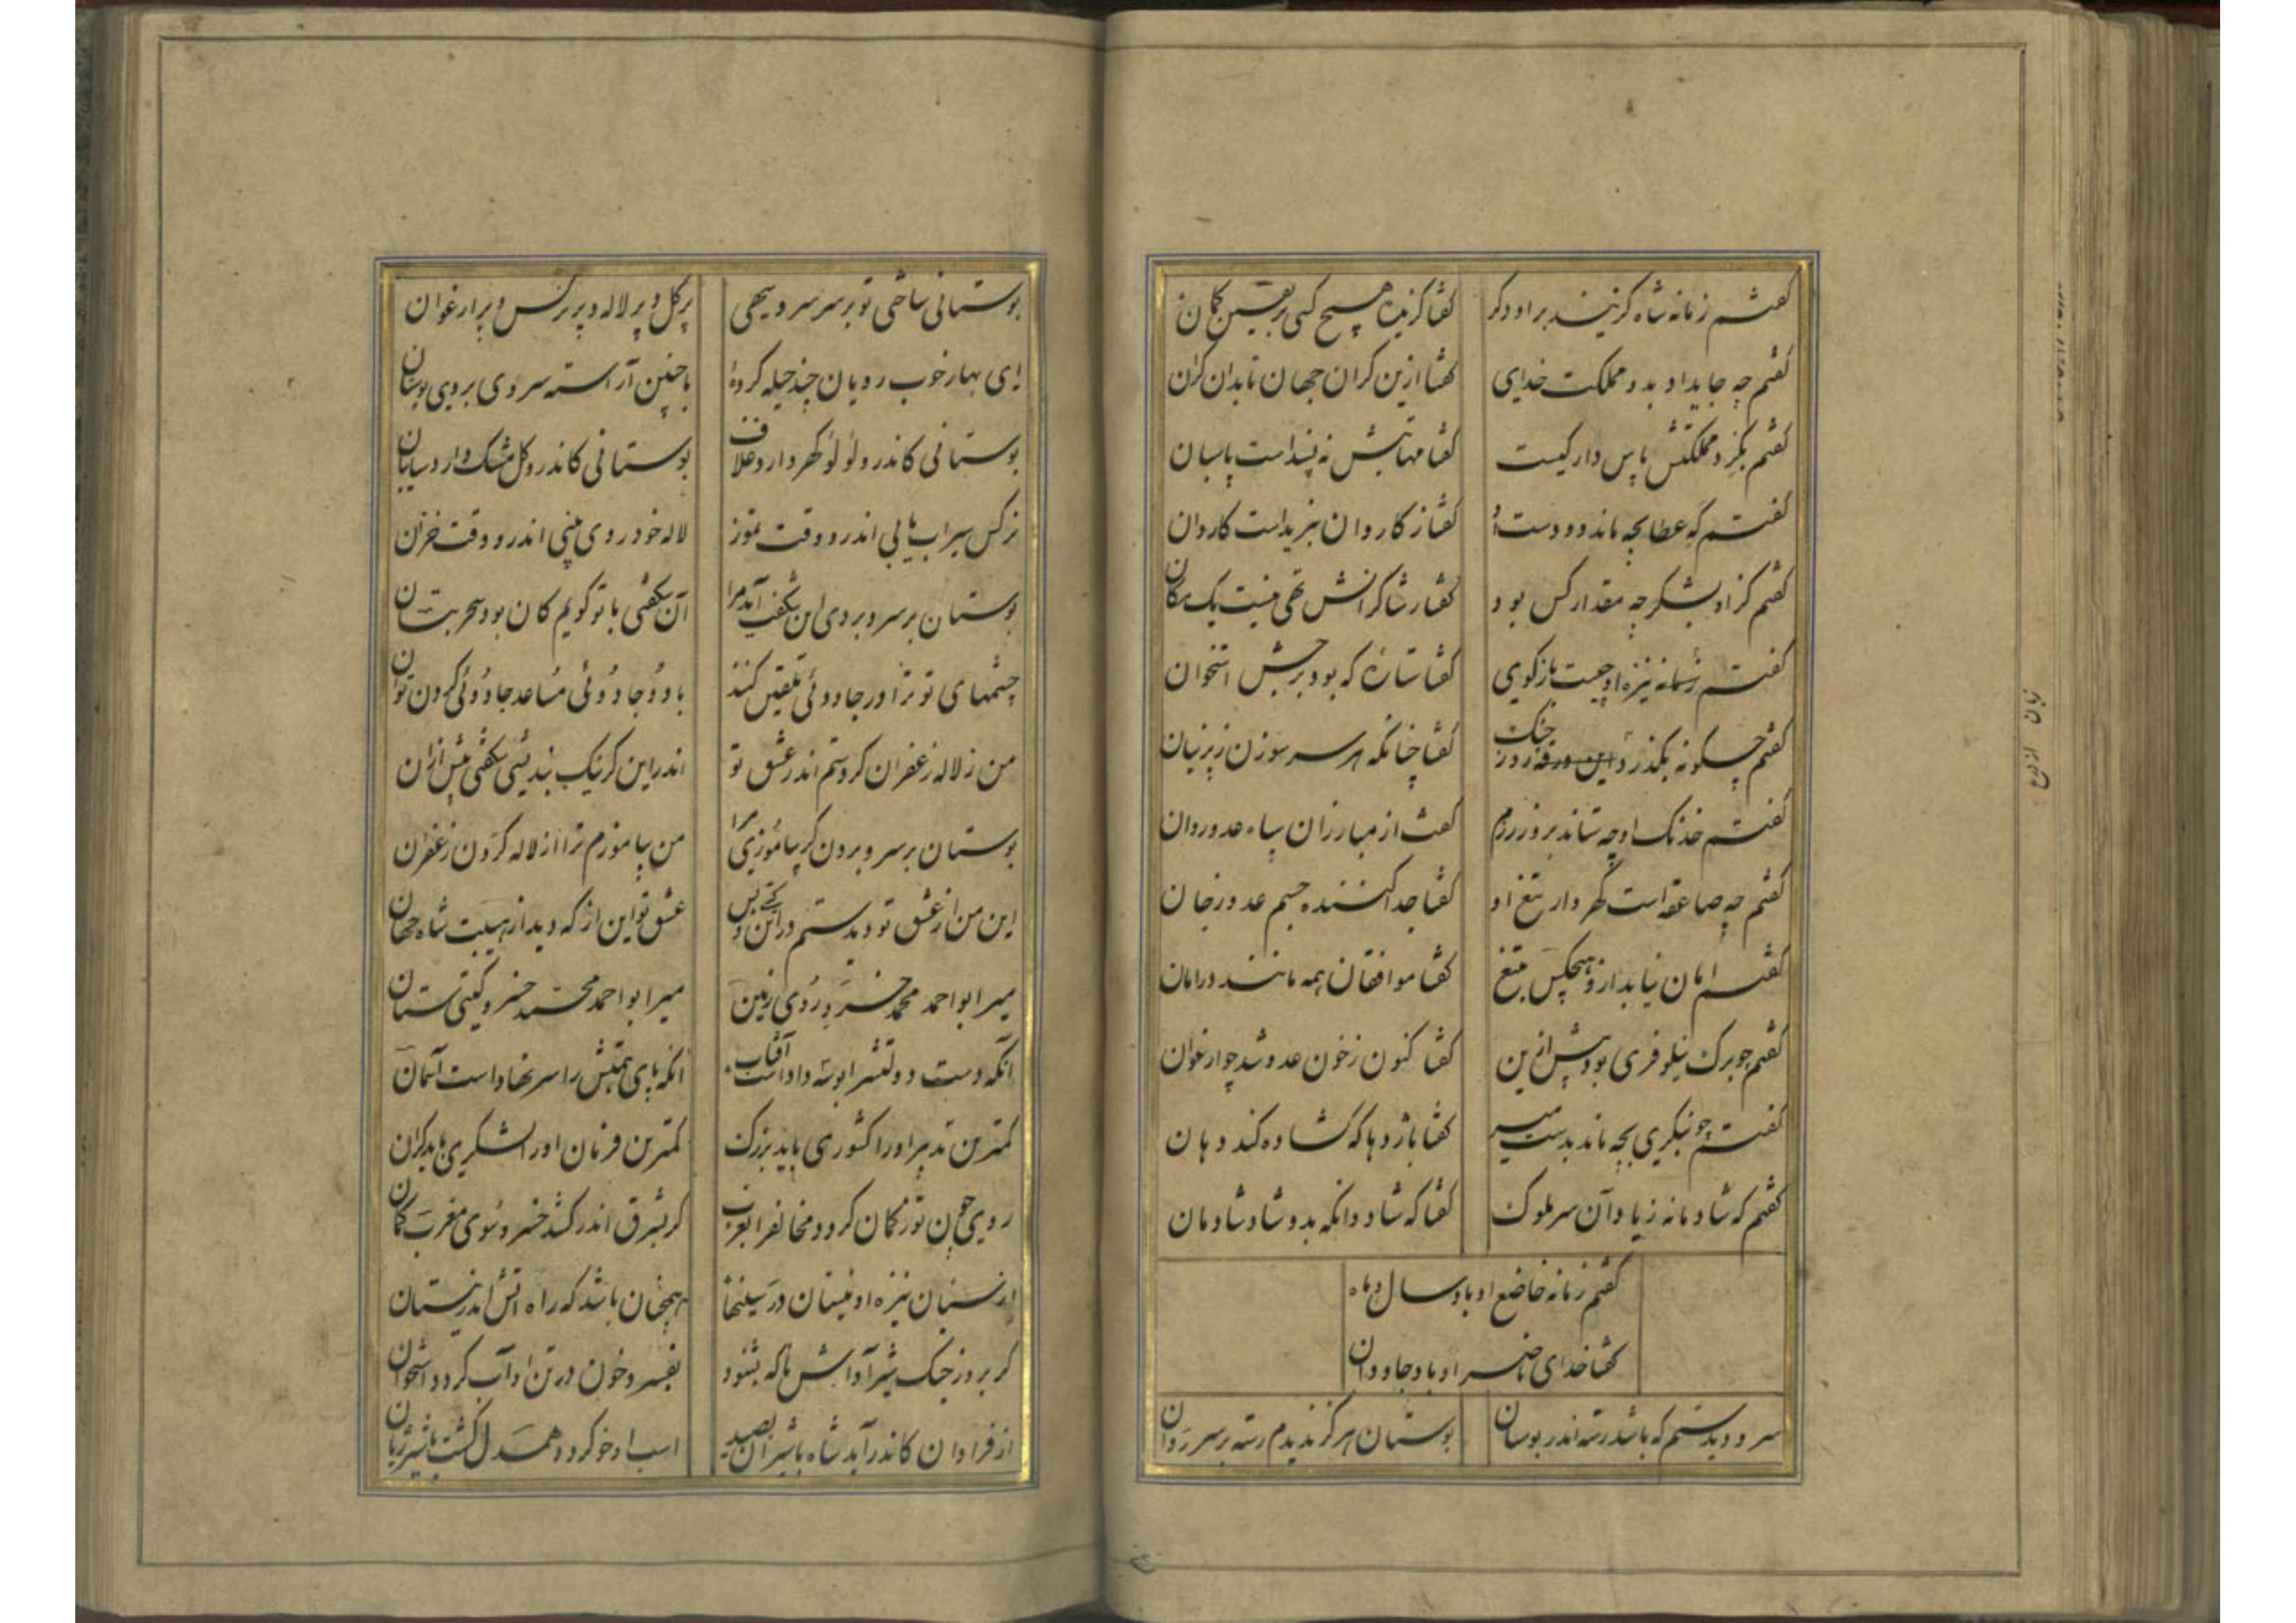 کفتم زمانه شاه گزیند بر او دگر
کفتا گزیده هیچ کسی بر یقین گمان
کفتم چه جاید او بدو مملکت خدای
کفتا ازین کران جهان تا بدان کران
کفتم بکرد مملکتش پاس دار کیست
کفتا مهابتش نه پسنداست پاسبان
کفتم گه عطا بچه ماند دو دست او
کفتا ز کاروان نبریداست کاروان
کفتم کزاو بشکر چه مقدار کس بود
کفتا ز شاکرانش تهی نیست یک مکان
کفتم نشانه نیزه او چیست بازگوی
کفتا ستاره که بود برجش استخوان
کفتم چگونه بگذرد این ورقه روز جنک
کفتا چنانکه هر سر سوزن ز پرنیان
کفتم خدنک او چه ستاند بروز رزم
کفتا از مبارزان سپاه عدو روان
کفتم چه صاعقه است گهردار تیغ او
کفتا جدا کننده جسم عدو ز جان
کفتم امان نیابد ازو هیچکس بتیغ
کفتا موافقان همه مانند در امان
کفتم چو برک نیلوفری بود پیش ازین
کفتا کنون ز خون عدو شد چو ارغوان
کفتم چو بنگری بچه ماند بدست میر
کفتا باژدها که گشاده کند دهان
کفتم که شادمانه زیاد آن سر ملوک
کفتا که شاد و آنکه بدو شاد شادمان
کفتم زمانه خاضع او باد سال و ماه
کفتا خدای ناصر او باد جاودان
سرو دیدستم که باشد رسته اندر بوستان
بوستان هرگز ندیدم رسته بر سرو روان
بوستانی ساختی تو بر سر سرو سهی
پر کل و پر لاله و پر نرگس و پر ارغوان
ای بهار خوب رویان چند حیله کردهٔ
با چنین آراسته سروی بروی بوستان
بوستانی کاندرو لؤلؤ گهر دارد غلاف
بوستانی کاندرو گل مشک دارد سایبان
نرکس سیراب یابی اندرو وقت تموز
لاله خودروی بینی اندرو وقت خزان
بوستان بر سرو بردی این شکفت آمد مرا
آن شکفتی با تو گویم کان بود سحر بتان
چشمهای تو ترا در جادوئی تلقین کنند
با دو جادوئی مساعد جادوئی کردن توان
من ز لاله زعفران کردستم اندر عشق تو
اندر این کر نیک بندیشی شکفتی بیش ازان
بوستان بر سرو بردن گر بیاموزی مرا
من بیاموزم ترا از لاله کردن زعفران
این من از عشق تو دیدستم درین گیتی و بس
عشق تو این از که دید از هیبت شاه جهان
میر ابو احمد محمد خسرو روی زمین
میر ابو احمد محمد خسرو گیتی ستان
آنکه دست دولتشرا بوسه داداست آفتاب
آنکه پای همتش را سر نهاداست آسمان
کمترین تدبیر او را کشوری باید بزرک
کمترین فرمان او را لشکری باید گران
روی چون توزکمان گردد مخالفرا بغرب
کر بشرق اندر کشد خسرو سوی مغرب کمان
از سنان نیزه او نیستان در سینها
همچنان باشد که راه آتش اندر نیستان
کر بروز جنک شیر آوازش ناکه بشنود
بفسرد خون در تن او آب گردد استخوان
از فراوان کاندر آید شاه با شیران بصید
اسب او خو کرد و همدل گشت با شیر ژیان